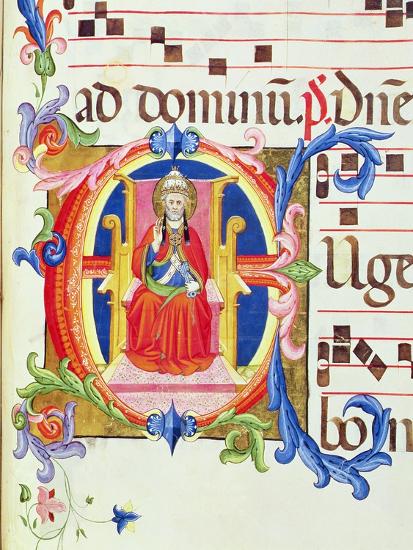 ad dominū. ps. Dñe
EUge
bon